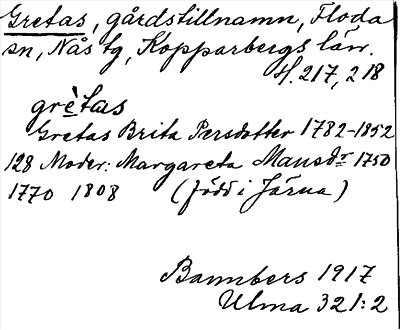 Gretas, gårdstillnamn, Floda
sn, Nås tg, Kopparbergs län.
H. 217, 218
grètas
Gretas Brita Persdotter 1782-1852
128 Moder: Margareta Mansdr 1750
1770 1808 (född i Järna)
Bannbers 1917
Ulma 321:2